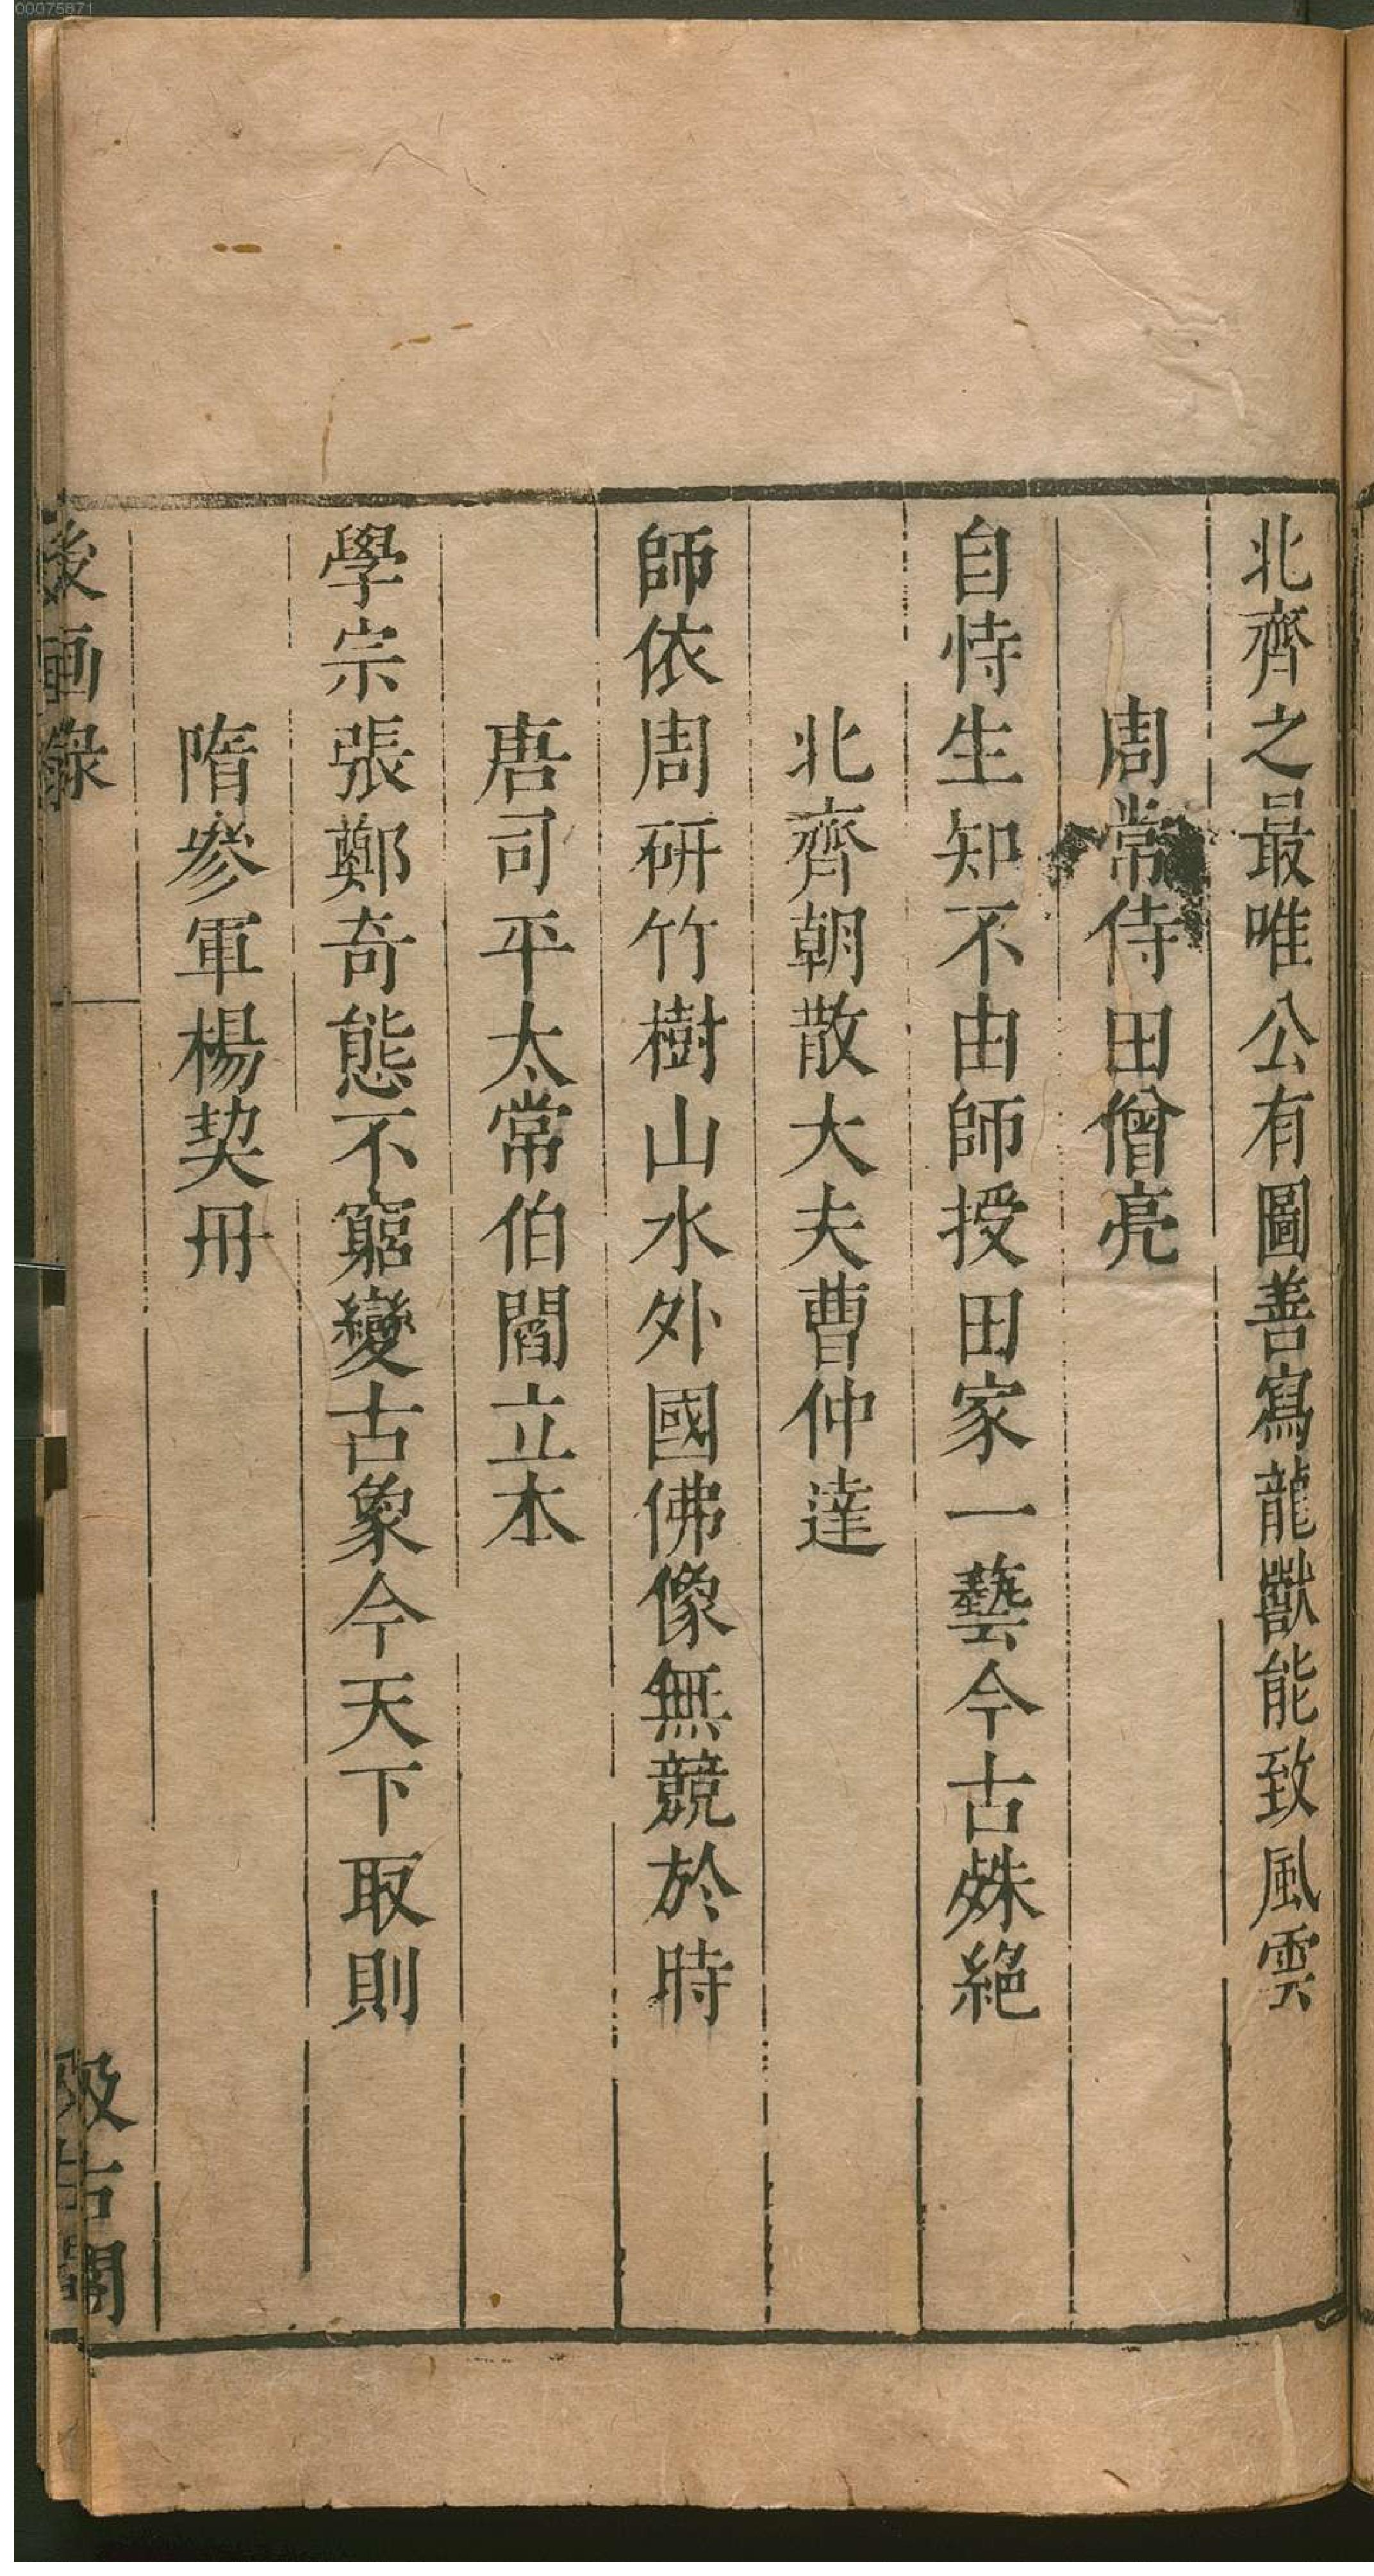 00075871
北齊之最唯公有圖善寫龍獸能致風雲
周常侍田僧亮
自恃生知不由師授田家一藝今古殊絕
北齊朝散大夫曹仲達
師依周研竹樹山水外國佛像無競於時
唐司平太常伯閻立本
學宗張鄭奇態不窮變古象今天下取則
隋參軍楊契丹
後画錄
汲古閣